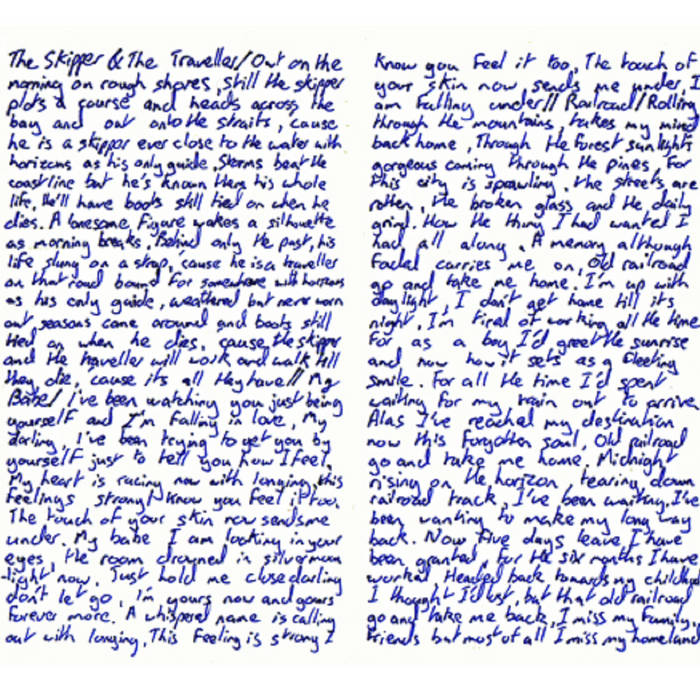 The Skipper & The Traveller/Out on the
morning on rough shores, still the skipper
plots a course and heads across the
bay and out onto the straits, cause
he is a skipper ever close to the water with
horizons as his only guide. Storms beat the
coastline but he's known them his whole
life. He'll have boots still tied on when he
dies. A lonesome figure makes a silhouette
as morning breaks. Behind only the past, his
life slung on a strap, 'cause he is a traveller
on that road bound for somewhere with horizons
as his only guide, weathered but never worn
out seasons come around and boots still
tied on when he dies, cause the skipper
and the traveller will work and walk till
they die, cause its all they have// My
Babe/ I've been watching you just being
yourself and I'm falling in love, My
darling, I've been trying to get you by
yourself just to tell you how I feel.
My heart is racing now with longing, this
feelings strong I know you feel it too.
The touch of your skin now sends me
under. My babe I am looking in your
eyes, the room drowned in silver moon
light now. Just hold me close darling
don't let go, I'm yours now and yours
forever more. A whispered name is calling
out with longing, This feeling is strong I
know you feel it too, The touch of
your skin now sends me under, I
am falling under// Railroad/Rolling
through the mountains, takes my mind
back home, Through the forest sunlights
gorgeous coming through the pines. For
this city is sprawling, the streets are
rotten, the broken glass and the daily
grind. How the thing I had wanted I
had all along. A memory although
faded carries me on, Old railroad
go and take me home. I'm up with
daylight, I don't get home till its
night, I'm tired of working all the time
For as a boy I'd greet the sunrise
and now how it sets as a fleeting
smile. For all the time I'd spent
waiting for my train out to arrive
Alas I've reached my destination
now this forgotten soul, Old railroad
go and take me home. Midnight
rising on the horizon, tearing down
railroad track, I've been waiting, I've
been wanting to make my long way
back. Now five days leave I have
been granted, for the six months I have
worked. Headed back towards my childhood
I thought I'd lost, but that old railroad
go and take me back, I miss my family,
friends but most of all I miss my homeland